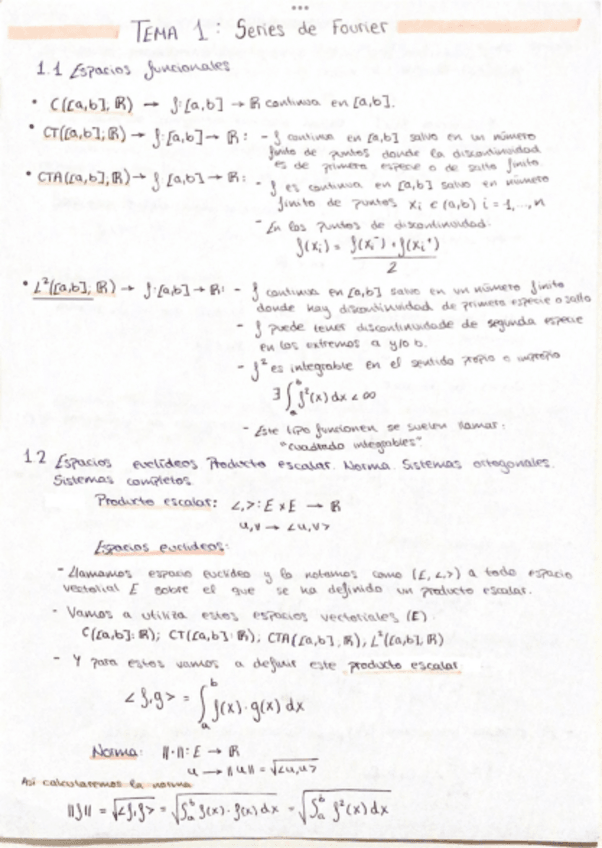 TEMA 1: Series de Fourier
1.1 Espacios funcionales
• C([a,b], R) → f: [a,b] → R continua en [a,b].
• CT([a,b], R) → f: [a,b] → R: - f continua en [a,b] salvo en un número
finito de puntos donde la discontinuidad
es de primera especie o de salto finito.
• CTA([a,b], R) → f: [a,b] → R: - f es continua en [a,b] salvo en número
finito de puntos xᵢ ∈ (a,b) i = 1,...,n
- En los puntos de discontinuidad:
f(xᵢ) = (f(xᵢ⁻) + f(xᵢ⁺)) / 2
• L²([a,b], R) → f: [a,b] → R: - f continua en [a,b] salvo en un número finito
donde hay discontinuidad de primera especie o salto
- f puede tener discontinuidade de segunda especie
en los extremos a y/o b.
- f² es integrable en el sentido propio o impropio
∃ ∫ₐᵇ f²(x) dx < ∞
- Este tipo funcionen se suelen llamar:
"cuadrado integrables"
1.2 Espacios euclídeos Producto escalar. Norma. Sistemas ortogonales.
Sistemas completos.
Producto escalar: <,>: E x E → R
u,v → <u,v>
Espacios euclídeos:
- Llamamos espacio euclídeo y lo notamos como (E, <,>) a todo espacio
vectorial E sobre el que se ha definido un producto escalar.
- Vamos a utiliza estos espacios vectoriales (E).
C([a,b]; R); CT([a,b]; R); CTA([a,b], R), L²([a,b], R)
- Y para estos vamos a definir este producto escalar
<f,g> = ∫ₐᵇ f(x)·g(x) dx
Norma: ||·||: E → R
u → ||u|| = √<u,u>
Así calcularemos la norma
||f|| = √<f,f> = √∫ₐᵇ f(x)·f(x) dx = √∫ₐᵇ f²(x) dx